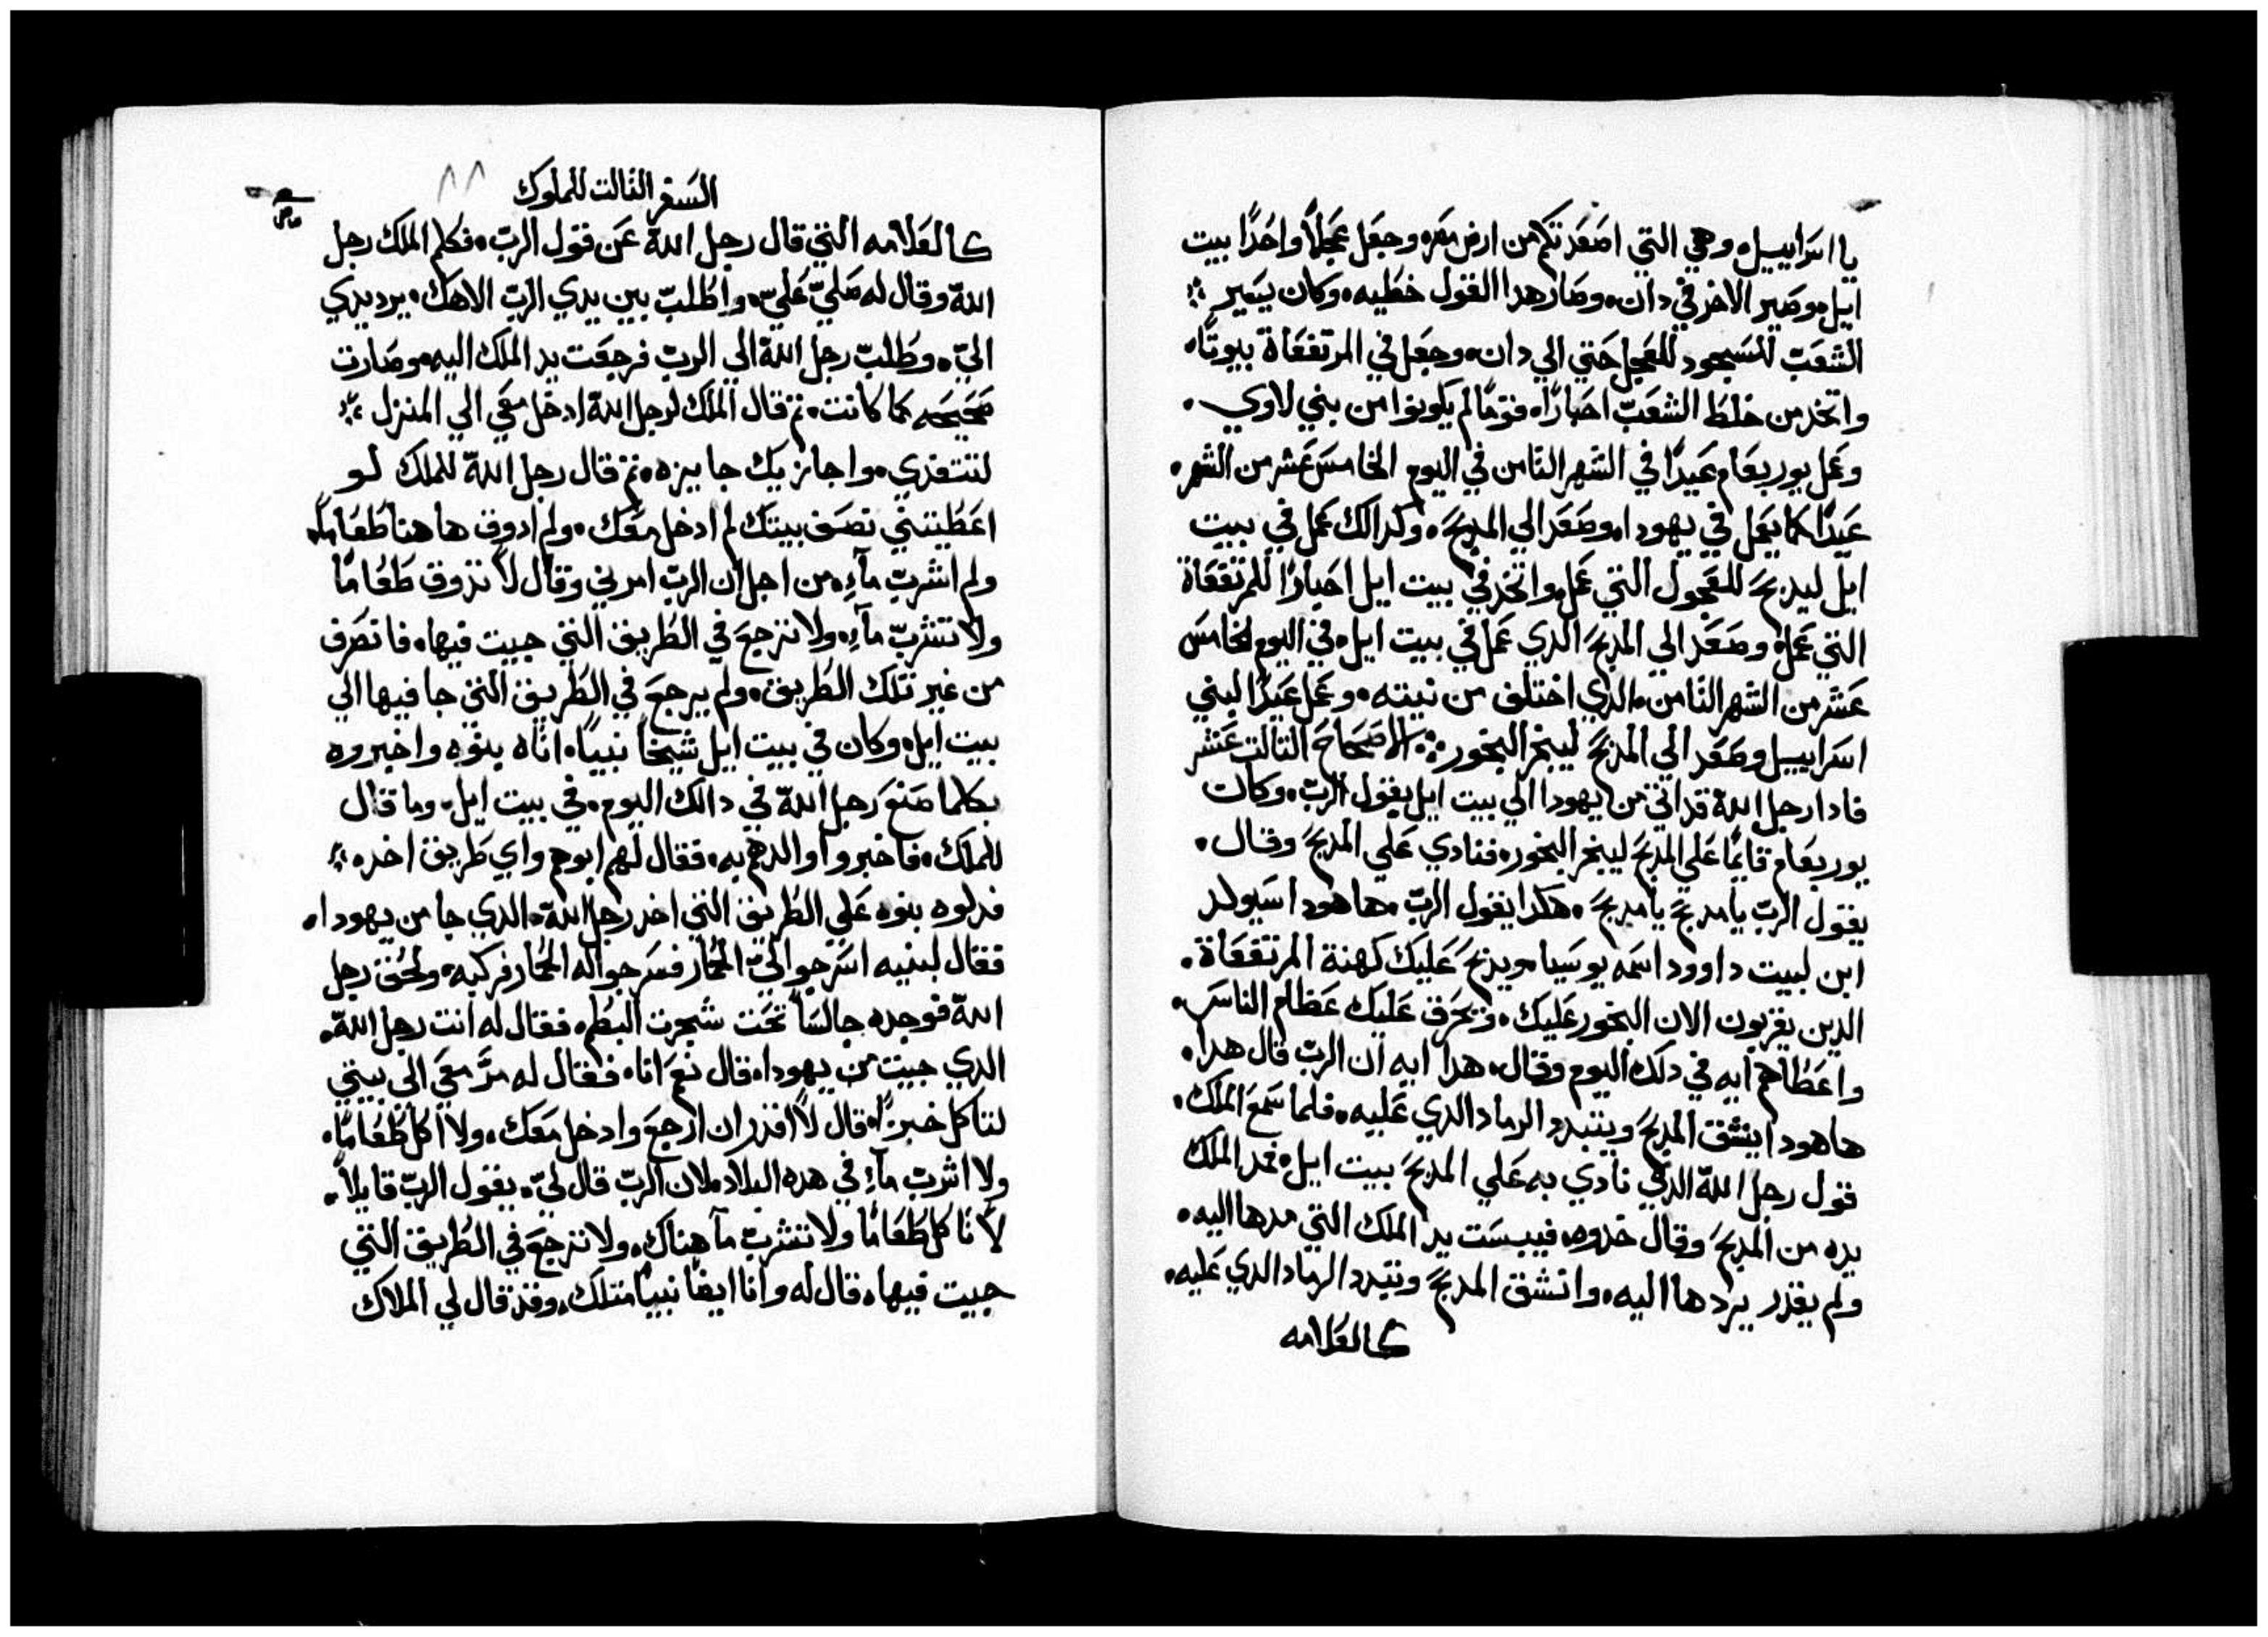 يا اسَراييل، وهي التي اصَعَدتكم من ارض مصَر، وجعَل عجَلاً واحَدًا بيت
ايل، وصَير الاخر في دان، وصَار هدا القول خطَيه، وكان يسَير
الشعَبّ للسَجود للعجَل حَتي الي دان، وجعَل في المرتفعَاة بيوتًا،
واتخد من خلطَ الشعَبّ احَبارًا، قومًا لم يكونوا من بني لاوي.
وعَمل يوربعَام عَيدًا في الشهر التامن في اليوم الخامسَ عَشر من الشهر.
عَيدًا كما يعَمل في يهودا، وصَعَد الي المدبحَ، وكدالك عَمل في بيت
ايل ليدبحَ للعجَول التي عَمل، واتخد في بيت ايل احَبارًا للمرتفعَاة
التي عَمل، وصَعَد الي المدبحَ الدي عَمل في بيت ايل، في اليوم الخامسَ
عَشر من الشهر التامن، الدي اختلف من نيته، وعَمل عَيدًا لبني
اسَراييل وصَعَد الي المدبحَ ليبخر البخور: الاصَحَاحَ التالت عَشر
فادا رجل اللّه قد اتي من يهودا الي بيت ايل بقول الربّ، وكان
يوربعَام قايمًا عَلي المدبحَ ليبخر البخور، فنادي عَلي المدبحَ وقال.
بقول الربّ يا مدبحَ يا مدبحَ، هكدا يقول الربّ، ها هودا سَيولد
ابن لبيت داوود اسَمه يوسَيا، ويدبحَ عَليك كهنة المرتفعَاة.
الدين يقربون الان البخور عَليك، وتحَرق عَليك عَظام الناسَ.
واعَطَاهم ايه في دلك اليوم وقال، هدا ايه ان الربّ قال هدا.
ها هودا ينشق المدبحَ ويتبدد الرماد الدي عَليه، فلما سَمعَ الملك.
قول رجل اللّه الدي نادي به عَلي المدبحَ ببيت ايل، فمد الملك
يده من المدبحَ وقال خدوه، فيبسَت يد الملك التي مدها اليه.
ولم يقدر يردها اليه، وانشق المدبحَ وتبدد الرماد الدي عَليه،
كالعَلامه
السَفر التالت للملوك
٨٨
كالعَلامه التي قال رجل اللّه عَن قول الربّ، فكلم الملك رجل
اللّه وقال له صَليّ عَليّ، واطَلبّ بين يدي الربّ الاهك، يرد يدي
اليّ، وطَلبّ رجل اللّه الي الربّ فرجعَت يد الملك اليه، وصَارت
صَحَيحَه كما كانت، تم قال الملك لرجل اللّه ادخل معَي الي المنزل
لتتغدي، واجازيك جايزه، تم قال رجل اللّه للملك لو
اعَطَيتني نصَف بيتك لم ادخل معَك، ولم ادوق ها هنا طَعَامًا،
ولم اشربّ مآء، من اجل ان الربّ امرني وقال لا تدوق طَعَامًا
ولا تشربّ مآء، ولا ترجعَ في الطَريق التي جيت فيها، فانصَرف
من غير تلك الطَريق، ولم يرجعَ في الطَريق التي جا فيها الي
بيت ايل، وكان في بيت ايل شيخاً نبيًا، اتاه بنوه واخبروه
بكلما صَنعَ رجل اللّه في دالك اليوم، في بيت ايل، وما قال
للملك، فاخبروا والدهم به، فقال لهم ابوهم واي طَريق اخد،
فدلوه بنوه عَلي الطَريق التي اخد رجل اللّه، الدي جا من يهودا،
فقال لبنيه اسَرجوا ليّ الحَمار فسَرجوا له الحَمار فركبه، ولحَق رجل
اللّه فوجده جالسَاً تحَت شجرت البطَم، فقال له انت رجل اللّه،
الدي جيت من يهودا، قال نعَم انا، فقال له مرَّ معَي الي بيتي
لتاكل خبزًا، قال لا اقدر ان ارجعَ وادخل معَك، ولا اكل طَعَامًا،
ولا اشربّ مآء في هده البلاد، لان الربّ قال ليّ، بقول الربّ قايلاً،
لا تاكل طَعَامًا ولا تشربّ مآ هناك، ولا ترجعَ في الطَريق التي
جيت فيها، قال له وانا ايضًا نبيًا متلك، وقد قال لي الملاك